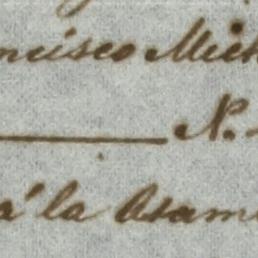 ncisco Mich
N.
á la Asam